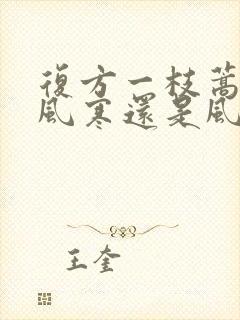 復方一枝蒿
風寒還是風
王奎